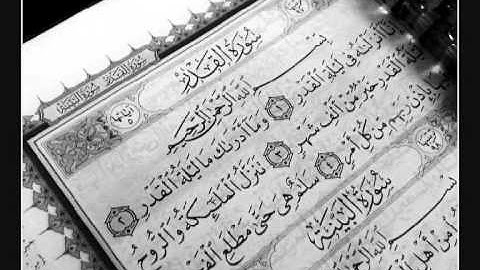 سُورَةُ الْقَدْرِ
بِسْمِ اللَّهِ الرَّحْمَٰنِ الرَّحِيمِ
أَنزَلْنَٰهُ فِي لَيْلَةِ الْقَدْرِ ١ وَمَا أَدْرَىٰكَ مَا لَيْلَةُ الْقَدْرِ ٢
لَيْلَةُ الْقَدْرِ خَيْرٌ مِّنْ أَلْفِ شَهْرٍ ٣ تَنَزَّلُ الْمَلَٰٓئِكَةُ وَالرُّوحُ
بِإِذْنِ رَبِّهِم مِّن كُلِّ أَمْرٍ ٤ سَلَٰمٌ هِيَ حَتَّىٰ مَطْلَعِ
سُورَةُ الْبَيِّنَةِ
بِسْمِ اللَّهِ
مِنْ أَهْلِ